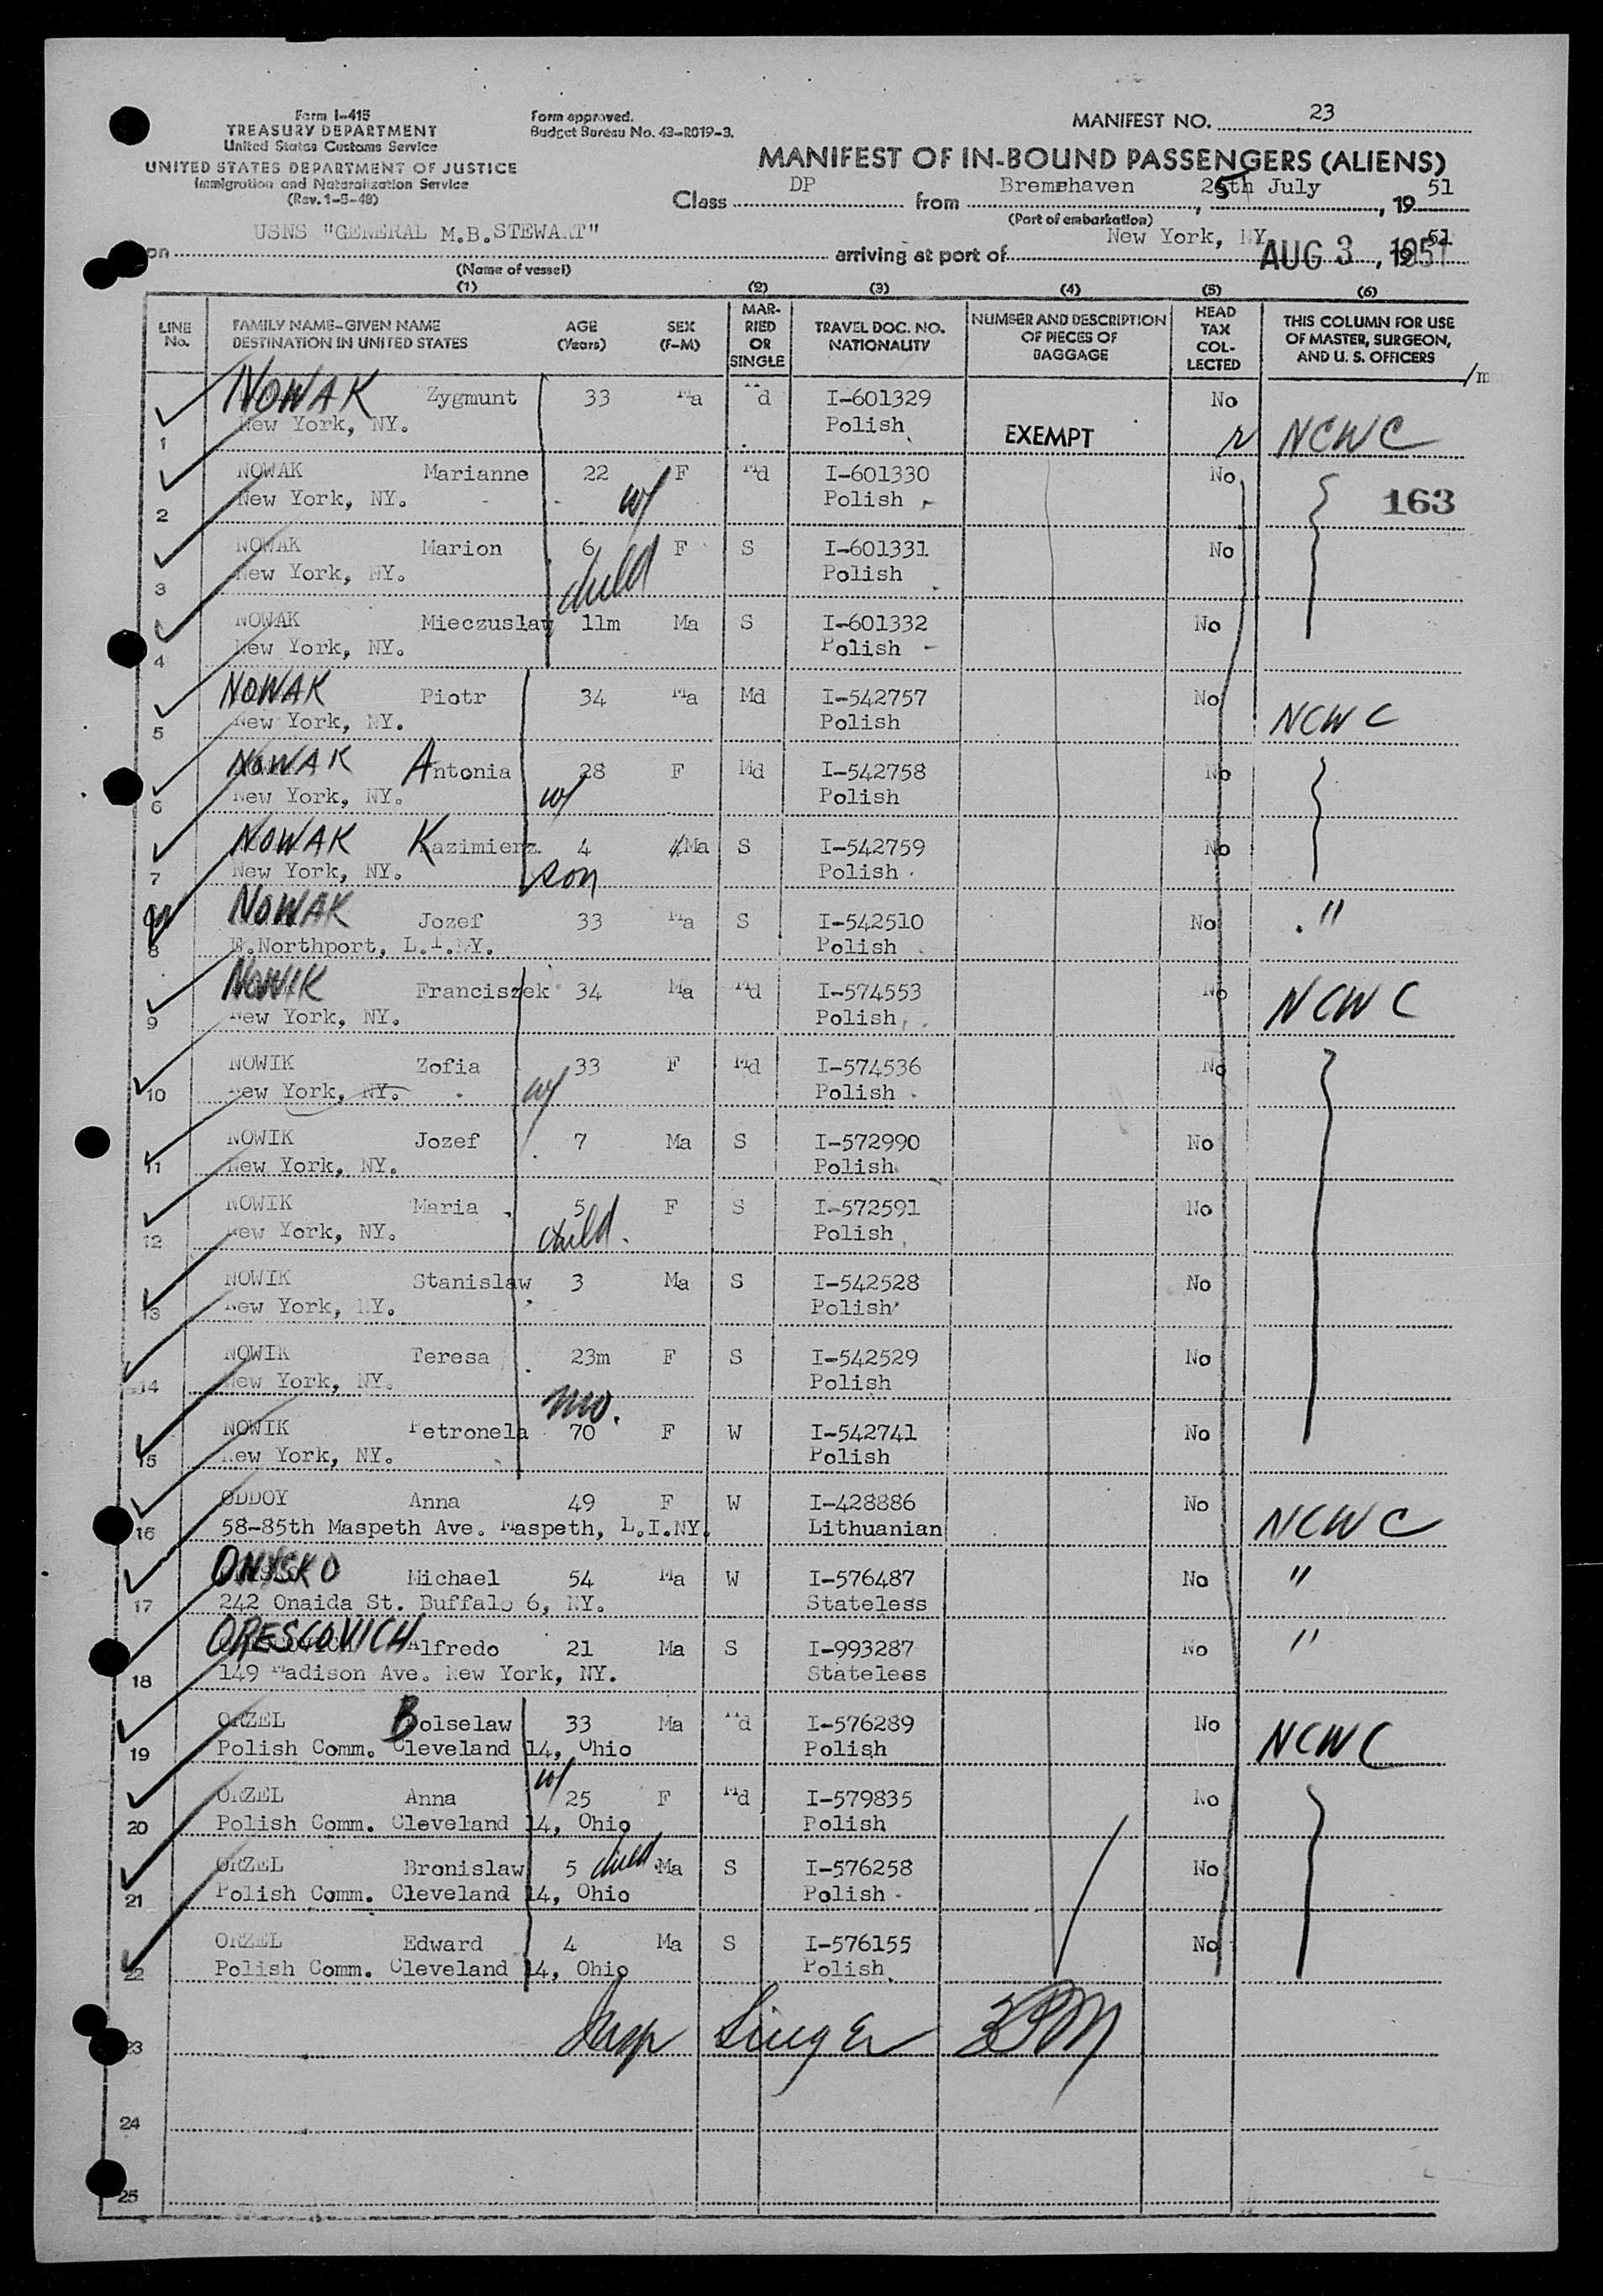 Form I-415
TREASURY DEPARTMENT
United States Customs Service
UNITED STATES DEPARTMENT OF JUSTICE
Immigration and Naturalization Service
(Rev. 1-5-48)
Form approved.
Budget Bureau No. 43-R019-3.
MANIFEST NO. 23
MANIFEST OF IN-BOUND PASSENGERS (ALIENS)
Class DP from Bremrhaven, 25th July, 19 51
(Port of embarkation)
on USNS "GENERAL M.B.STEWART" arriving at port of New York, NY AUG 3, 1951
(Name of vessel)
(1) (2) (3) (4) (5) (6)
LINE No. FAMILY NAME-GIVEN NAME DESTINATION IN UNITED STATES AGE (Years) SEX (F-M) MARRIED OR SINGLE TRAVEL DOC. NO. NATIONALITY NUMBER AND DESCRIPTION OF PIECES OF BAGGAGE HEAD TAX COLLECTED THIS COLUMN FOR USE OF MASTER, SURGEON, AND U. S. OFFICERS
NOWAK Zygmunt 33 Ma Md I-601329 No
1 New York, NY. Polish EXEMPT NCWC
NOWAK Marianne 22 F Md I-601330 No
2 New York, NY. w/ Polish 163
NOWAK Marion 6 F S I-601331 No
3 New York, NY. child Polish
NOWAK Mieczuslaw 11m Ma S I-601332 No
4 New York, NY. Polish
NOWAK Piotr 34 Ma Md I-542757 No
5 New York, NY. Polish NCWC
NOWAK Antonia 28 F Md I-542758 No
6 New York, NY. w/ Polish
NOWAK Kazimierz 4 Ma S I-542759 No
7 New York, NY. son Polish
NOWAK Jozef 33 Ma S I-542510 No "
8 E.Northport, L.I.NY. Polish
NOWIK Franciszek 34 Ma Md I-574553 No NCWC
9 New York, NY. Polish
NOWIK Zofia 33 F Md I-574536 No
10 New York, NY. w/ Polish
NOWIK Jozef 7 Ma S I-572990 No
11 New York, NY. Polish
NOWIK Maria 5 F S I-572591 No
12 New York, NY. child. Polish
NOWIK Stanislaw 3 Ma S I-542528 No
13 New York, NY. Polish
NOWIK Teresa 23m F S I-542529 No
14 New York, NY. Polish
mo.
NOWIK Petronela 70 F W I-542741 No
15 New York, NY. Polish
ODDOY Anna 49 F W I-428886 No NCWC
16 58-85th Maspeth Ave. Maspeth, L.I.NY. Lithuanian
ONYSKO Michael 54 Ma W I-576487 No "
17 242 Onaida St. Buffalo 6, NY. Stateless
ORESCOVICH Alfredo 21 Ma S I-993287 No "
18 149 Madison Ave. New York, NY. Stateless
ORZEL Bolselaw 33 Ma Md I-576289 No NCWC
19 Polish Comm. Cleveland 14, Ohio Polish
w/
ORZEL Anna 25 F Md I-579835 No
20 Polish Comm. Cleveland 14, Ohio Polish
ORZEL Bronislaw 5 child Ma S I-576258 No
21 Polish Comm. Cleveland 14, Ohio Polish
ORZEL Edward 4 Ma S I-576155 No
22 Polish Comm. Cleveland 14, Ohio Polish
23 Insp Singer 3PM
24
25